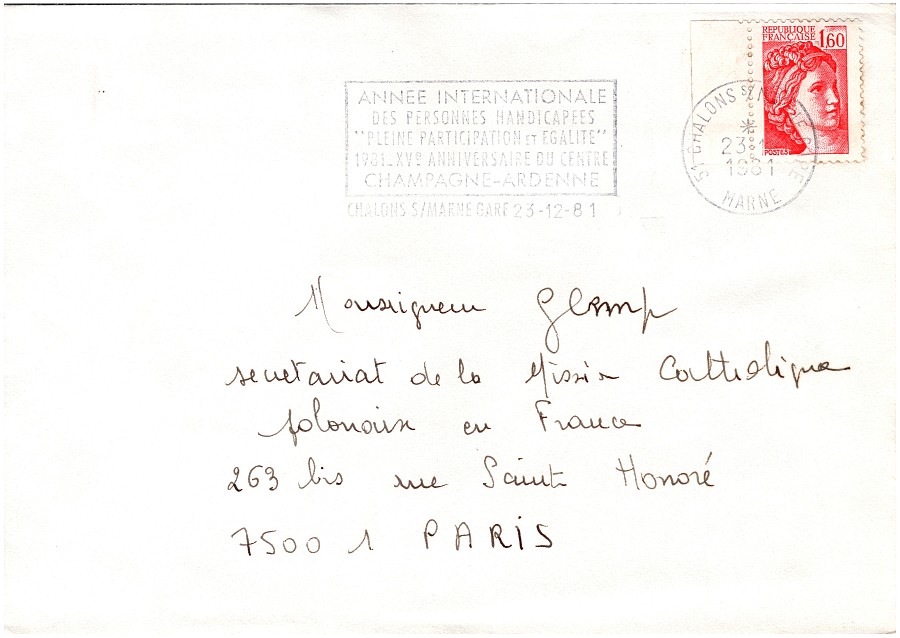 REPUBLIQUE
FRANÇAISE 1,60
POSTES
ANNEE INTERNATIONALE
DES PERSONNES HANDICAPEES
"PLEINE PARTICIPATION ET EGALITE"
1981_XVe ANNIVERSAIRE DU CENTRE
CHAMPAGNE-ARDENNE
CHALONS S/MARNE GARE 23-12-81
51 CHALONS S/ GARE
23
1981
MARNE
Monseigneur Glemp
secretariat de la Mission Catholique
polonaise en France
263 bis rue Saint Honoré
75001 PARIS